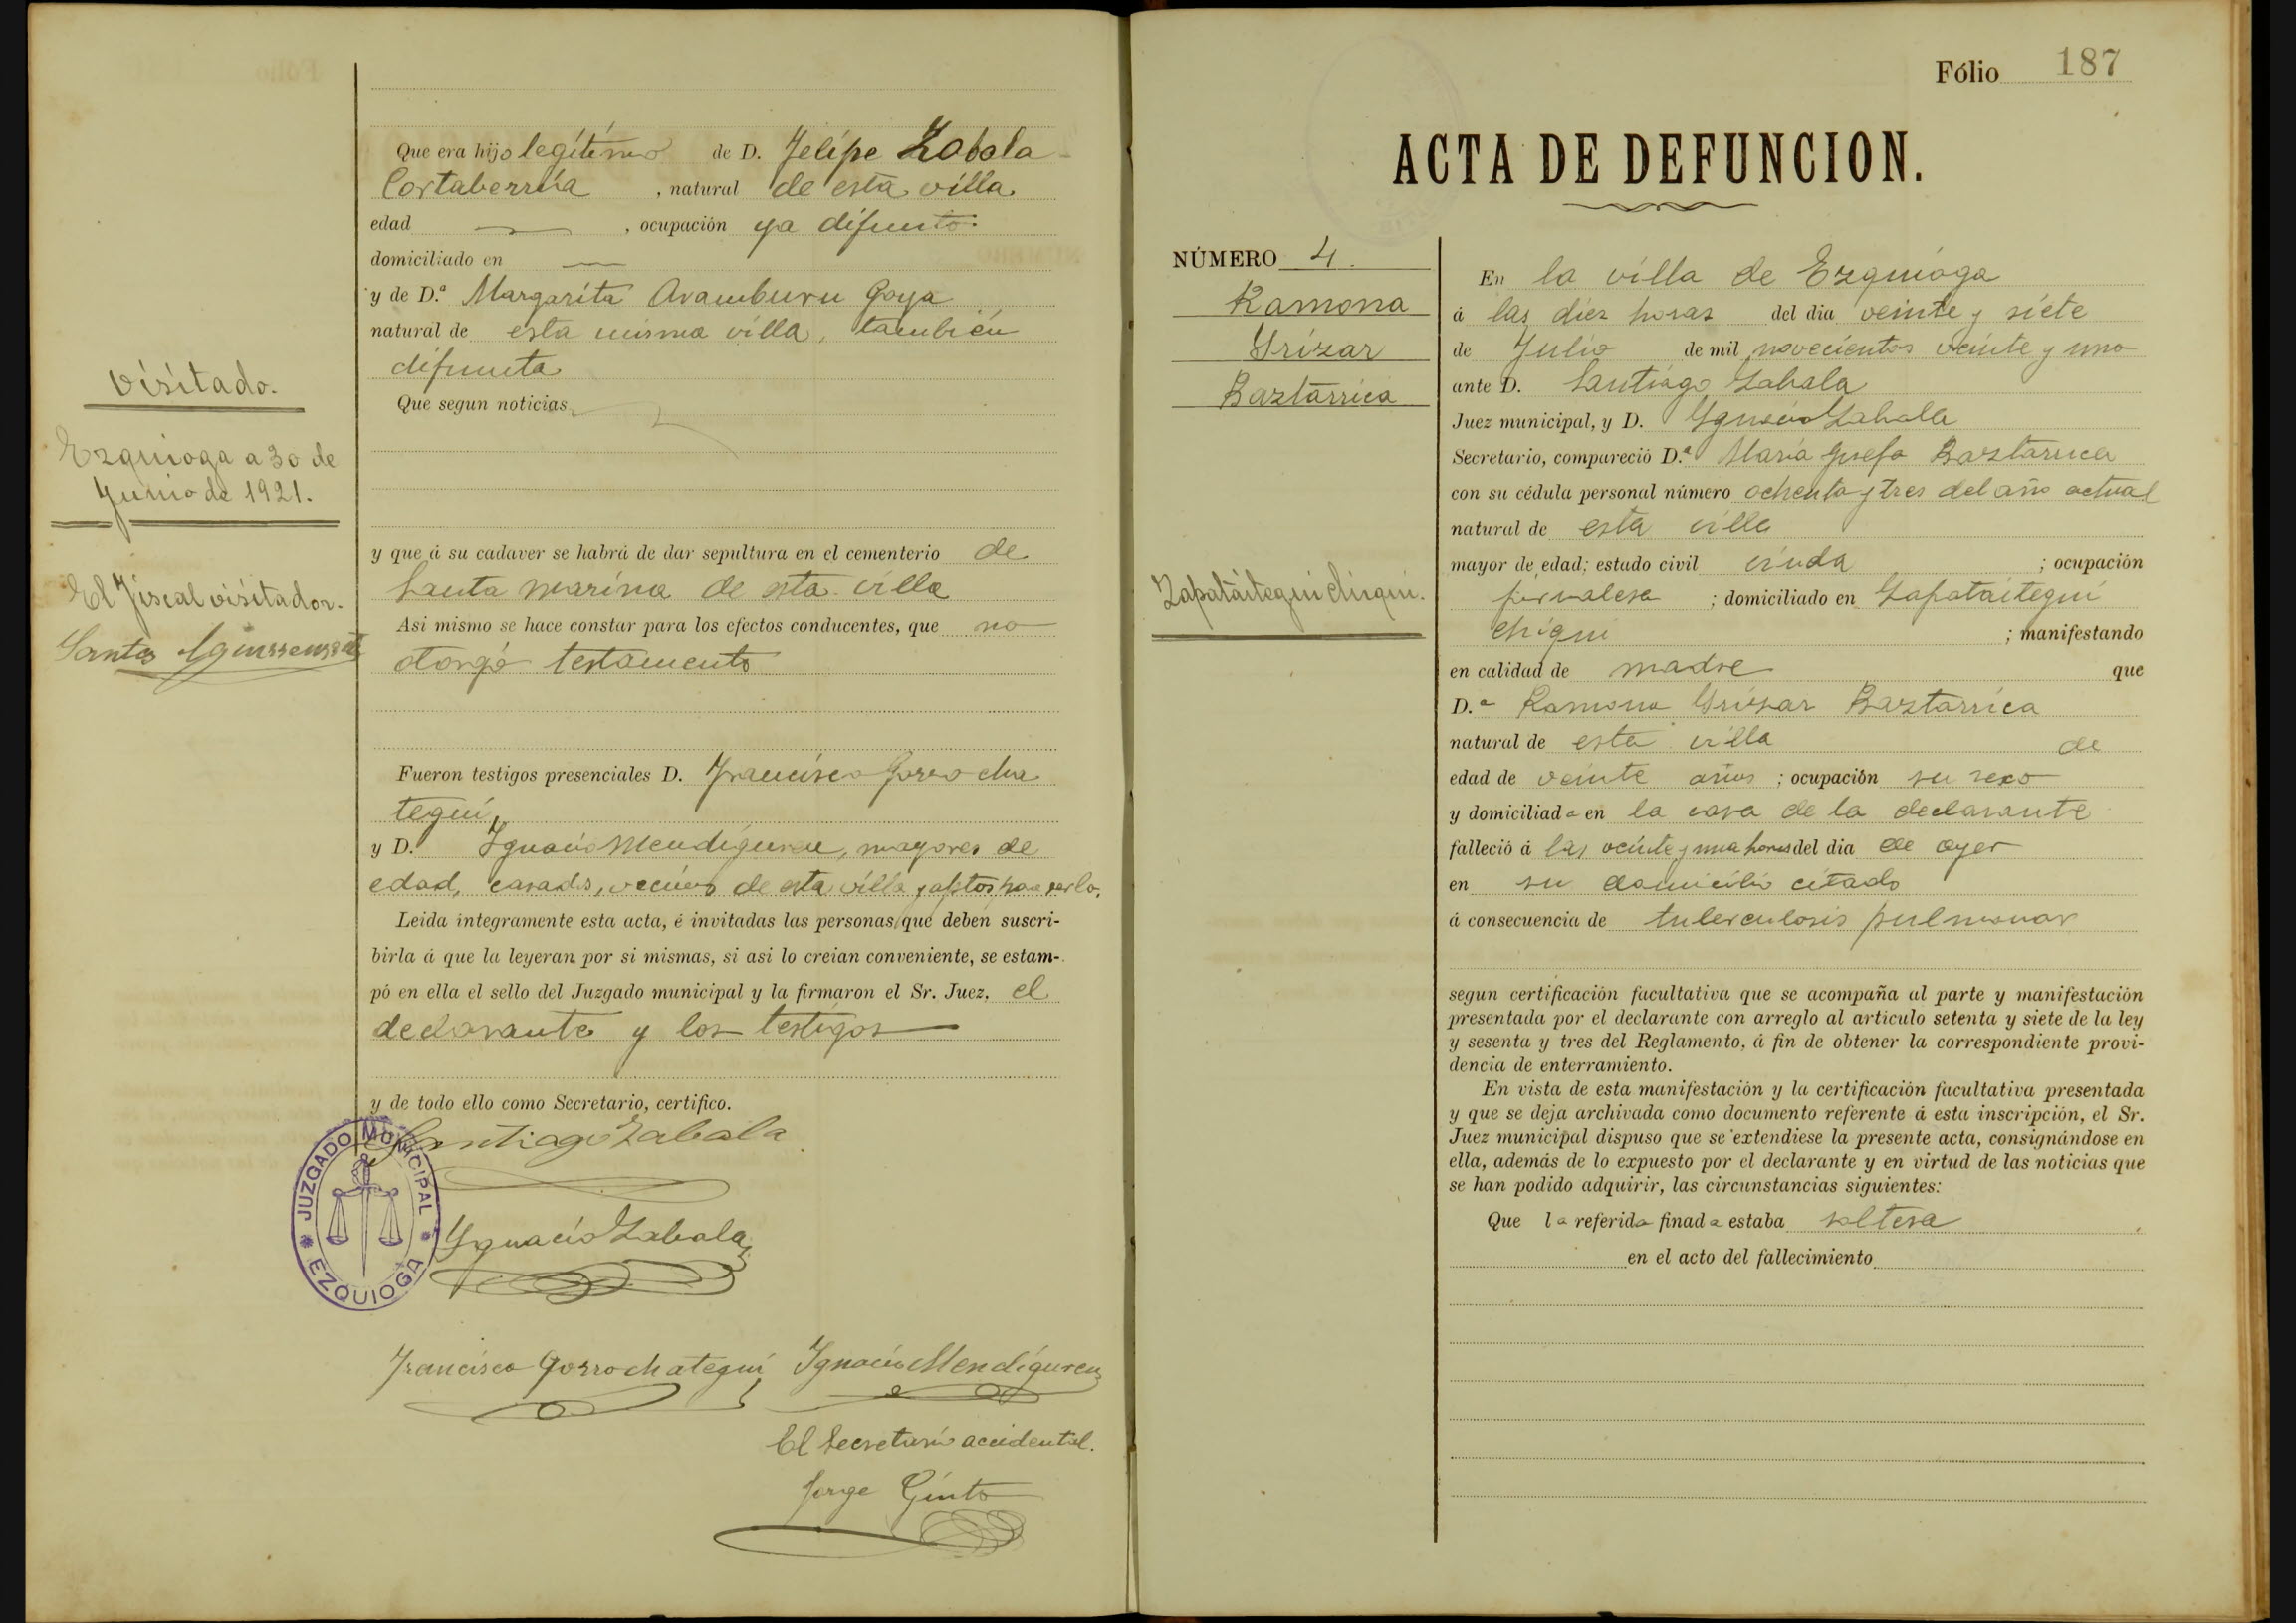 Que era hijo legítimo de D. Felipe Zabala
Cortaberria, natural de esta villa
edad — , ocupación ya difunto.
domiciliado en —
y de D.ª Margarita Aramburu Goya
natural de esta misma villa, también
difunta
Que segun noticias
y que á su cadaver se habrá de dar sepultura en el cementerio de
Santa Marina de esta villa
Asi mismo se hace constar para los efectos conducentes, que no
otorgó testamento
Fueron testigos presenciales D. Francisco Gorrocha
tegui,
y D. Ignacio Mendiguren, mayores de
edad, casados, vecinos de esta villa y aptos para serlo.
Leida integramente esta acta, é invitadas las personas que deben suscri-
birla á que la leyeran por si mismas, si asi lo creian conveniente, se estam-
pó en ella el sello del Juzgado municipal y la firmaron el Sr. Juez, el
declarante y los testigos
y de todo ello como Secretario, certifico.
Santiago Zabala
JUZGADO MUNICIPAL
EZQUIOGA
Ygnacio Zabala
Francisco Gorrochategui Ignacio Mendiguren
El Secretario accidental.
Jorge
Visitado.
Ezquioga a 30 de
Junio de 1921.
El Fiscal visitador.
Santos
Fólio 187
ACTA DE DEFUNCION.
NÚMERO 4.
Ramona
Yrizar
Baztarrica
Zapataitegui chiqui.
En la villa de Ezquioga
á las diez horas del dia veinte y siete
de Julio de mil novecientos veinte y uno
ante D. Santiago Zabala
Juez municipal, y D. Ygnacio Zabala
Secretario, compareció D.ª Maria Josefa Baztarrica
con su cédula personal número ochenta y tres del año actual
natural de esta villa
mayor de edad; estado civil viuda ; ocupación
jornalera ; domiciliado en Zapataitegui
chiqui ; manifestando
en calidad de madre que
D.ª Ramona Yrizar Baztarrica
natural de esta villa de
edad de veinte años ; ocupación su sexo
y domiciliada en la casa de la declarante
falleció á las veinte y una horas del dia de ayer
en su domicilio citado
á consecuencia de tuberculosis pulmonar
segun certificación facultativa que se acompaña al parte y manifestación
presentada por el declarante con arreglo al artículo setenta y siete de la ley
y sesenta y tres del Reglamento, á fin de obtener la correspondiente provi-
dencia de enterramiento.
En vista de esta manifestación y la certificación facultativa presentada
y que se deja archivada como documento referente á esta inscripción, el Sr.
Juez municipal dispuso que se extendiese la presente acta, consignándose en
ella, además de lo expuesto por el declarante y en virtud de las noticias que
se han podido adquirir, las circunstancias siguientes:
Que la referida finada estaba soltera
en el acto del fallecimiento